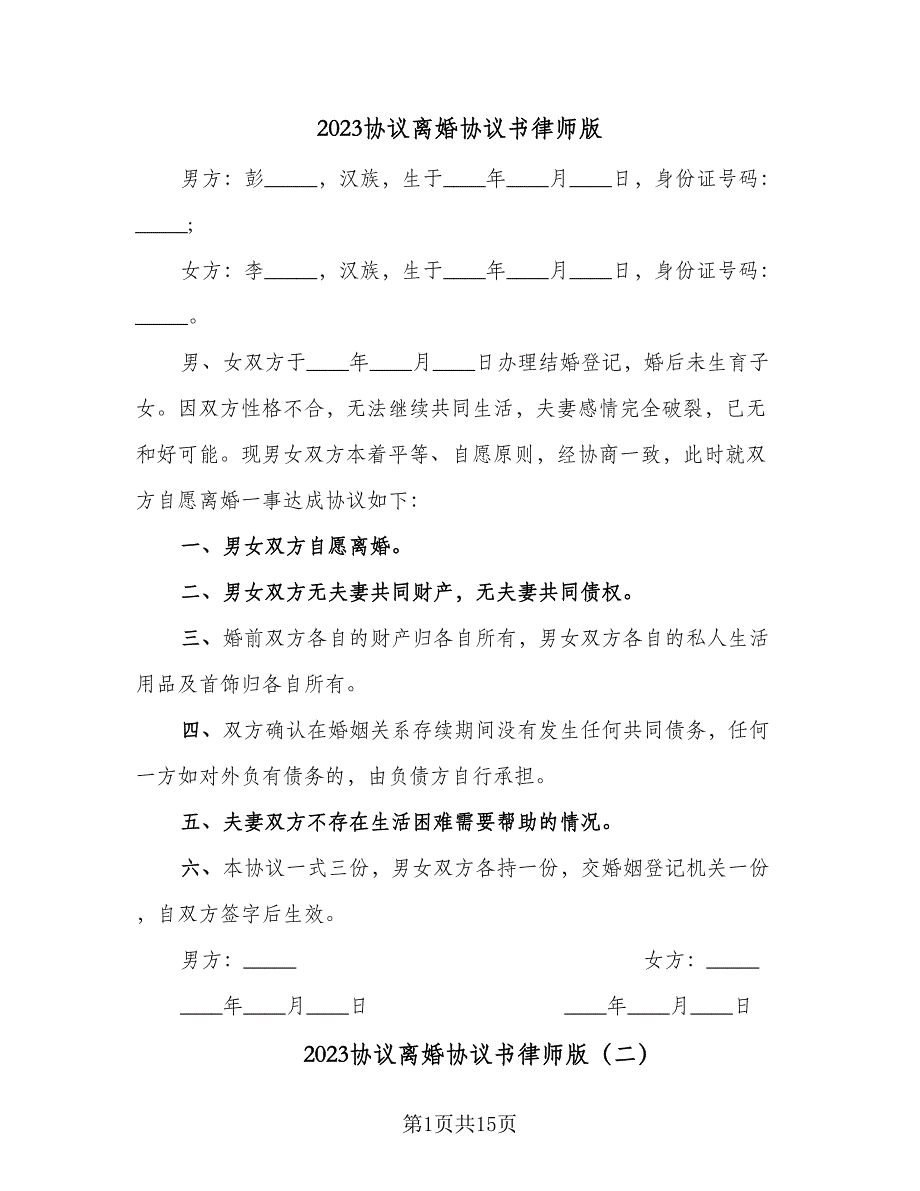 2023协议离婚协议书律师版
男方：彭_____，汉族，生于____年____月____日，身份证号码：
_____;
女方：李_____，汉族，生于____年____月____日，身份证号码：
_____。
男、女双方于____年____月____日办理结婚登记，婚后未生育子
女。因双方性格不合，无法继续共同生活，夫妻感情完全破裂，已无
和好可能。现男女双方本着平等、自愿原则，经协商一致，此时就双
方自愿离婚一事达成协议如下：
一、男女双方自愿离婚。
二、男女双方无夫妻共同财产，无夫妻共同债权。
三、婚前双方各自的财产归各自所有，男女双方各自的私人生活
用品及首饰归各自所有。
四、双方确认在婚姻关系存续期间没有发生任何共同债务，任何
一方如对外负有债务的，由负债方自行承担。
五、夫妻双方不存在生活困难需要帮助的情况。
六、本协议一式三份，男女双方各持一份，交婚姻登记机关一份
，自双方签字后生效。
男方：_____ 女方：_____
____年____月____日 ____年____月____日
2023协议离婚协议书律师版（二）
第1页共15页